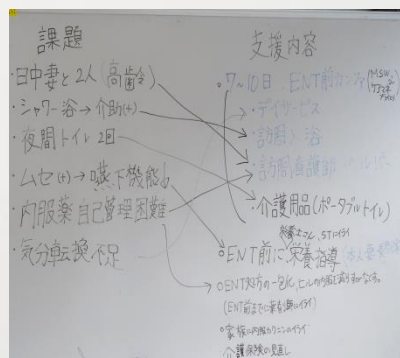 課題
・日中妻と2人(高齢)
・シャワー浴→介助(+)
・夜間トイレ 2回
・ムセ(+)→嚥下機能↓
・内服薬 自己管理困難
・気分転換 不足
支援内容
。7、10日 ENT前カンファ(MSW
・デイサービス
・訪問入浴
・訪問看護
・介護用品(ポータブルトイレ)
栄養士さん、STにイライ
。ENT前に栄養指導
。ENT処方の一包化、
(ENT前までに薬剤師にイライ)
。家族に内服カクニンにイライ
介護保険の見直し